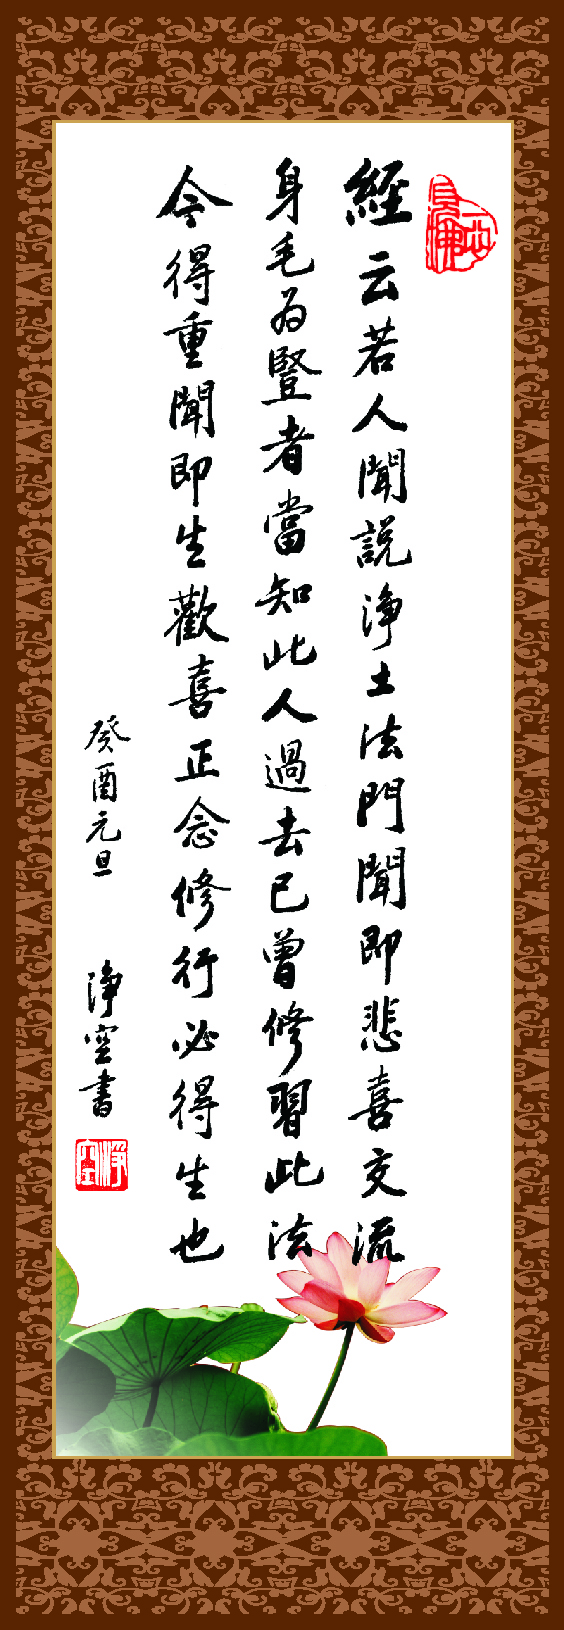 經云若人聞説淨土法門聞即悲喜交流
身毛為豎者當知此人過去已曾修習此法
今得重聞即生歡喜正念修行必得生也
癸酉元旦
淨空書
淨空